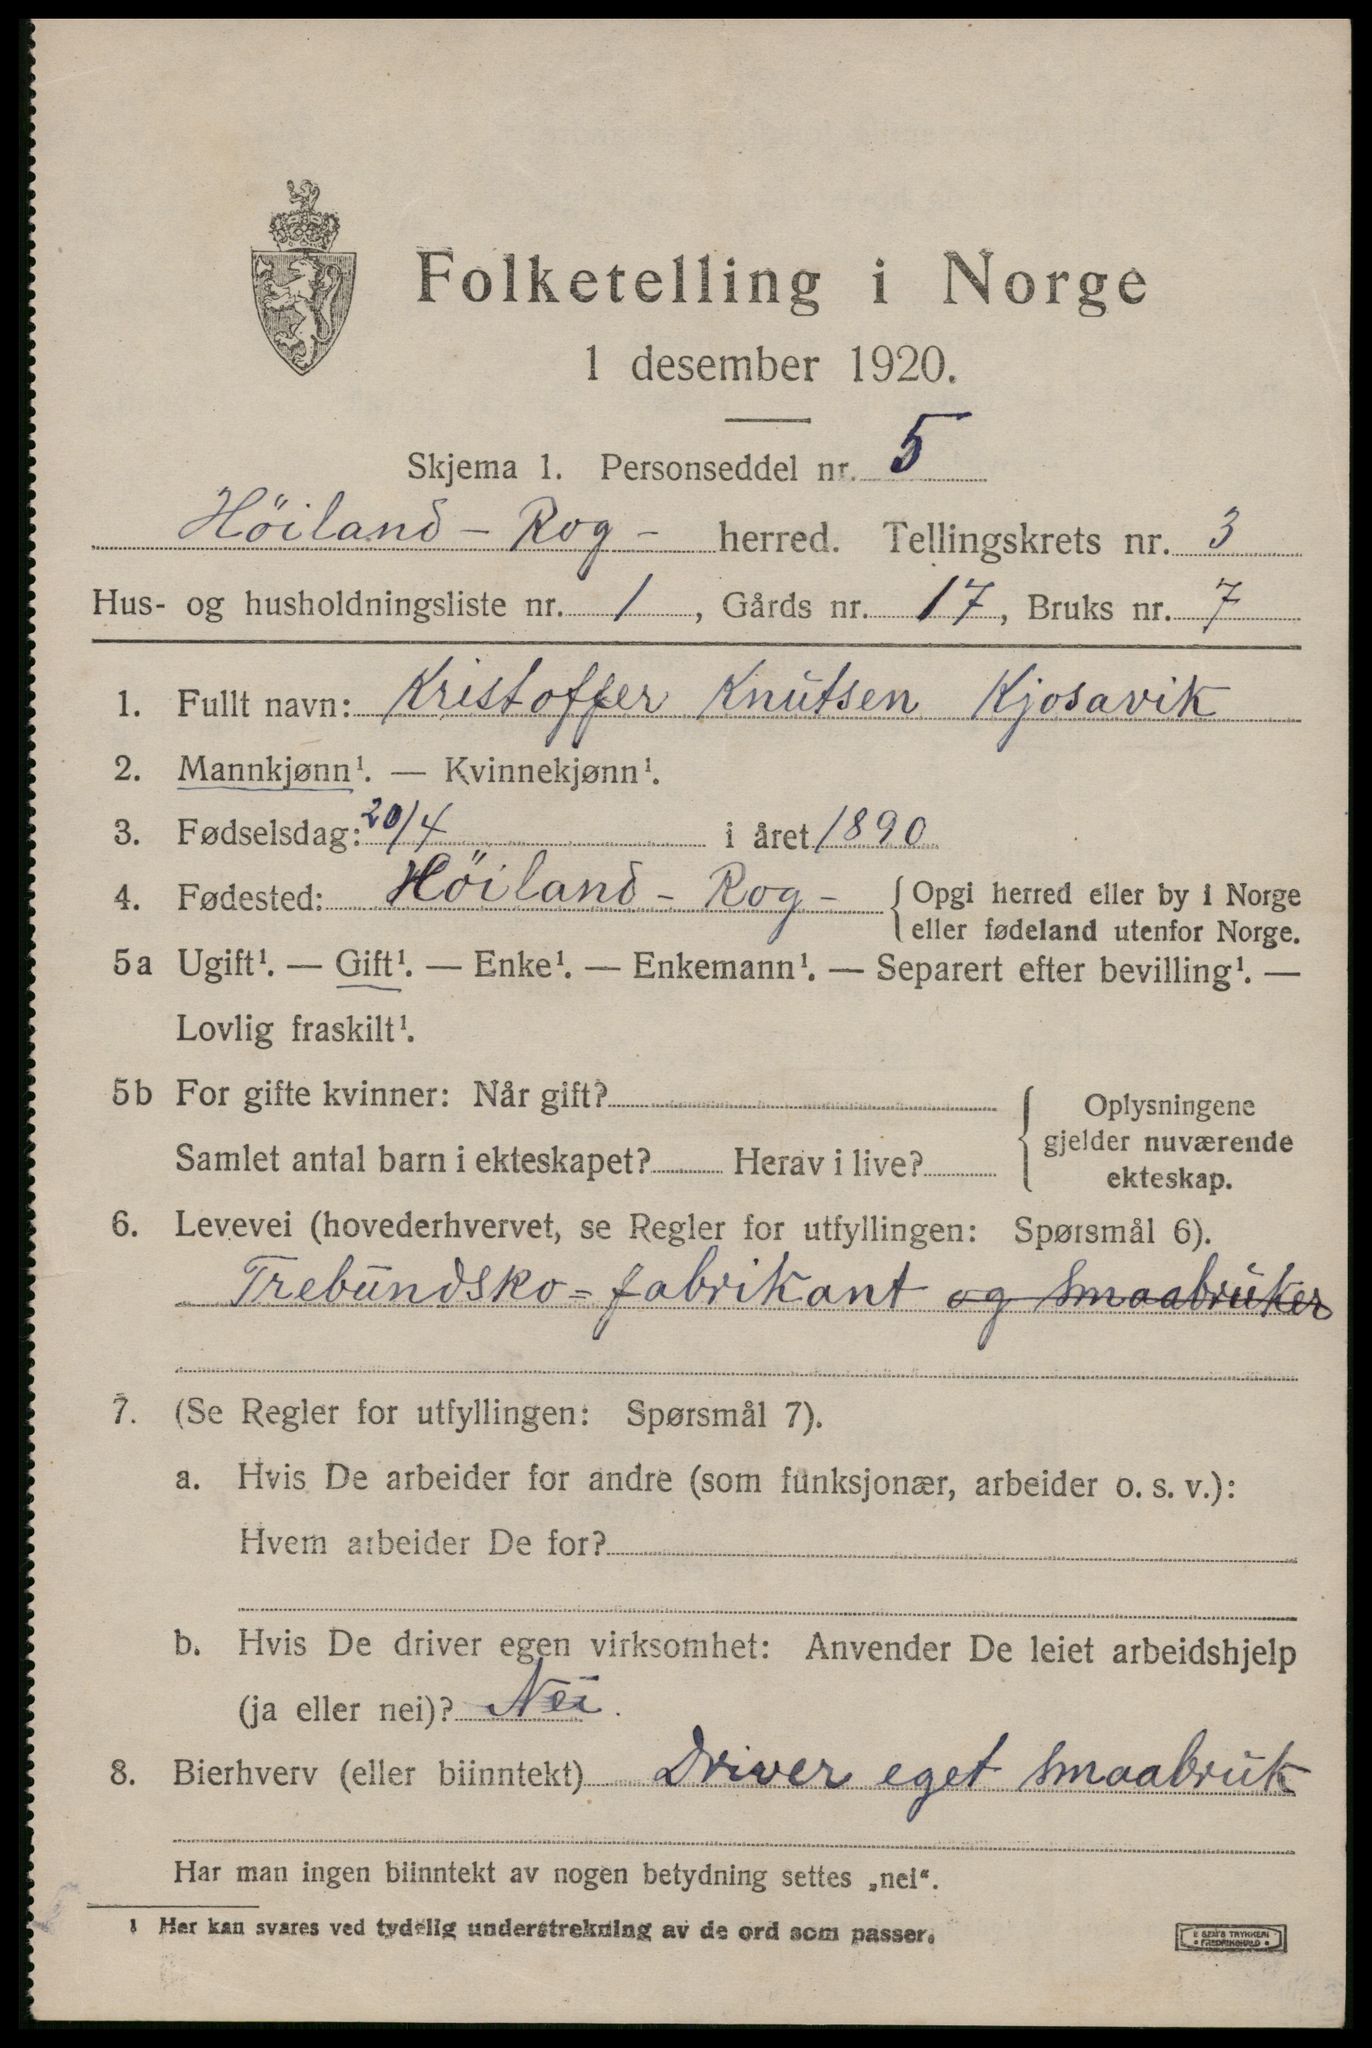 Folketelling i Norge
1 desember 1920.
Skjema 1. Personseddel nr. 5
Höiland - Rog - herred. Tellingskrets nr. 3
Hus- og husholdningsliste nr. 1, Gårds nr. 17, Bruks nr. 7
1. Fullt navn: Kristoffer Knutsen Kjosavik
2. Mannkjønn¹. — Kvinnekjønn¹.
3. Fødselsdag: 20/4 i året 1890
4. Fødested: Höiland - Rog - { Opgi herred eller by i Norge
eller fødeland utenfor Norge.
5a Ugift¹. — Gift¹. — Enke¹. — Enkemann¹. — Separert efter bevilling¹. —
Lovlig fraskilt¹.
5b For gifte kvinner: Når gift?
Samlet antal barn i ekteskapet? Herav i live?
Oplysningene
gjelder nuværende
ekteskap.
6. Levevei (hovederhvervet, se Regler for utfyllingen: Spørsmål 6).
Trebundsko=fabrikant og smaabruker
7. (Se Regler for utfyllingen: Spørsmål 7).
a. Hvis De arbeider for andre (som funksjonær, arbeider o. s. v.):
Hvem arbeider De for?
b. Hvis De driver egen virksomhet: Anvender De leiet arbeidshjelp
(ja eller nei)? Nei.
8. Bierhverv (eller biinntekt) Driver eget smaabruk
Har man ingen biinntekt av nogen betydning settes „nei“.
1 Her kan svares ved tydelig understrekning av de ord som passer.